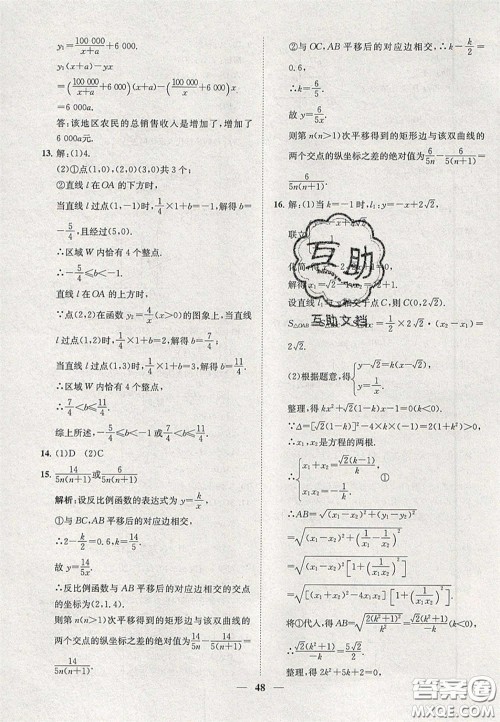 y₁=100 000/(x+a)+6 000.
y₁(x+a)-yx
=(100 000/(x+a)+6 000)(x+a)-(100 000/x+6 000)x
=6 000a.
答:该地区农民的总销售收入是增加了,增加了
6 000a元.
13. 解:(1)4.
(2)①点(1,0),(2,0)(3,0)共3个;
②直线l在OA的下方时,
当直线l过点(1,-1)时,1/4×1+b=-1,解得b=
-5/4,且经过(5,0).
∴区域W内恰有4个整点.
∴-5/4≤b<-1.
直线l在OA的上方时,
∵点(2,2)在函数y=4/x(x>0)的图象上,
当直线l过点(1,2)时,1/4×1+b=2,解得b=7/4;
当直线l过点(1,3)时,1/4×1+b=3,解得b=11/4.
∴区域W内恰有4个整点,
∴7/4<b≤11/4.
综上所述,-5/4≤b<-1或7/4<b≤11/4.
14. (1)D (2)C
15. 14/5n(n+1)或6/5n(n+1)
解析:设反比例函数的表达式为y=k/x,
①与BC,AB平移后的对应边相交,
∴2-k/2=0.6,∴k=14/5.
故y=14/5x.
∴反比例函数与AB平移后的对应边相交的交点
的坐标为(2,1.4);
则第n(n>1)次平移得到的矩形边与该双曲线的
两个交点的纵坐标之差的绝对值为14/5n-14/5(n+1)=
14/5n(n+1).
②与OC,AB平移后的对应边相交,∴k-k/2=
0.6,∴k=6/5.
故y=6/5x.
则第n(n>1)次平移得到的矩形边与该双曲线的
两个交点的纵坐标之差的绝对值为6/5n-6/5(n+1)=
6/5n(n+1)
16. 解:(1)当k=-1时,l₁:y=-x+2√2,
联立
化简
解得
设直线l₁与 交于点C,则C(0,2√2).
S△OAB= =1/2×2√2·(x₂-x₁)=
2√2.
(2)根据题意,得{y-√2=k(x-√2), y=1/x.
整理,得kx²+√2(1-k)x-1=0(k<0).
∵Δ=[√2(1-k)]²-4×k×(-1)=2(1+k²)>0,
∴x₁,x₂是方程的两根.
∴{x₁+x₂=√2(k-1)/k, x₁x₂=-1/k ①
∴AB=√((x₁-x₂)²+(y₁-y₂)²)
=√((x₁-x₂)²+(1/x₁-1/x₂)²)
=√((x₁-x₂)²[1+(1/x₁x₂)²])
=√([(x₁+x₂)²-4x₁x₂][1+(1/x₁x₂)²])
将①代入,得AB=√(2(k²+1)²/k²)=√2(k²+1)/-k.
∴√2(k²+1)/-k=5√2/2.
整理,得2k²+5k+2=0
互助
互助文档
48
答案圈
MXQE.COM